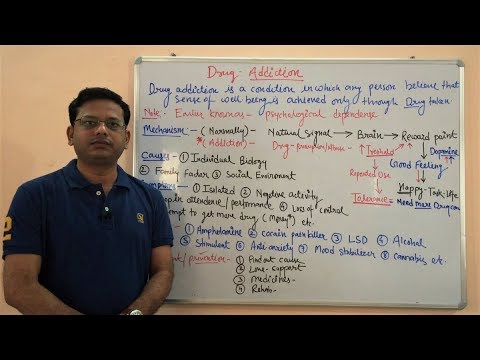 Drug - Addiction
Drug addiction is a condition in which any person believe that
sense of well being is achieved only through Drug taken
Note: Earlier known as - psychological dependence
Mechanism → (Normally) - Natural Signal → Brain → Reward point
*(Addiction) - Drug - ↑ Threshold Dopamine
Good Feeling
Repeated Use
Happy - Task - Life
Tolerance = Need more Drug
Causes ① Individual Biology
② Family Factor ③ Social Enviroment
① Isolated ② Negative activity
attendence / performance ④ Loss of control
to get more drug (money*) etc.
① Amphetamine ② cocain painkiller ③ LSD ④ Alcohal
⑤ Stimulent ⑥ Anti-anxiety ⑦ Mood stabilizer ⑧ cannabis etc.
① Find out cause
② Love - support
③ Medicines -
④ Rehab -